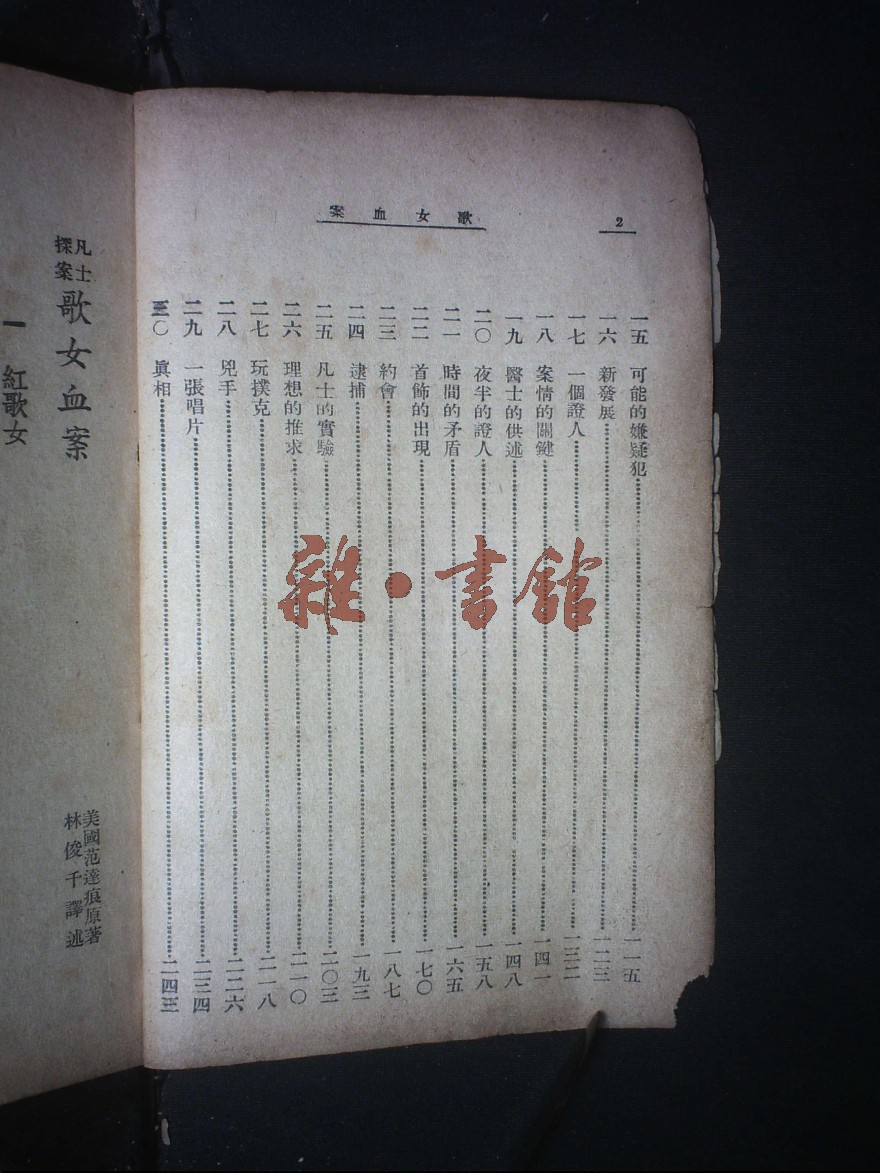 2
歌女血案
一五 可能的嫌疑犯 一一五
一六 新發展 一二三
一七 一個證人 一三二
一八 案情的關鍵 一四一
一九 醫士的供述 一四八
二〇 夜半的證人 一五八
二一 時間的矛盾 一六五
二二 首飾的出現 一七〇
二三 約會 一八七
二四 逮捕 一九三
二五 凡士的實驗 二〇三
二六 理想的推求 二一〇
二七 玩撲克 二一八
二八 兇手 二二六
二九 一張唱片 二三四
三〇 眞相 二四三
凡士探案
歌女血案
美國范達痕原著
林俊千譯述
一 紅歌女
雜·書館